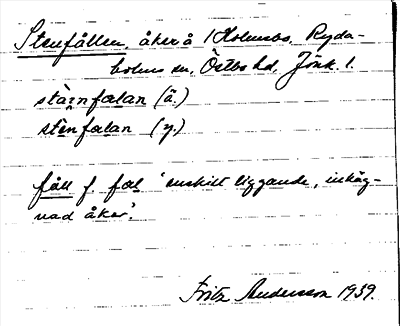 Stenfållen, åker å 1 Holmsbo, Ryda-
holms sn, Östbo hd, Jönk. l.
stàinfælan (ä.)
stènfælan (y.)
fåll f. fæl 'enskilt liggande, inhäg-
nad åker'.
Fritz Andersson 1939.